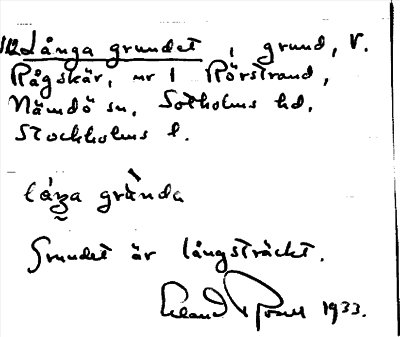 112 Långa grundet, grund, V.
Rågskär, nr 1 Rörstrand,
Nämdö sn, Sotholms hd,
Stockholms l.
låŋa grùnda
Grundet är långsträckt.
Erland Rosell 1933.